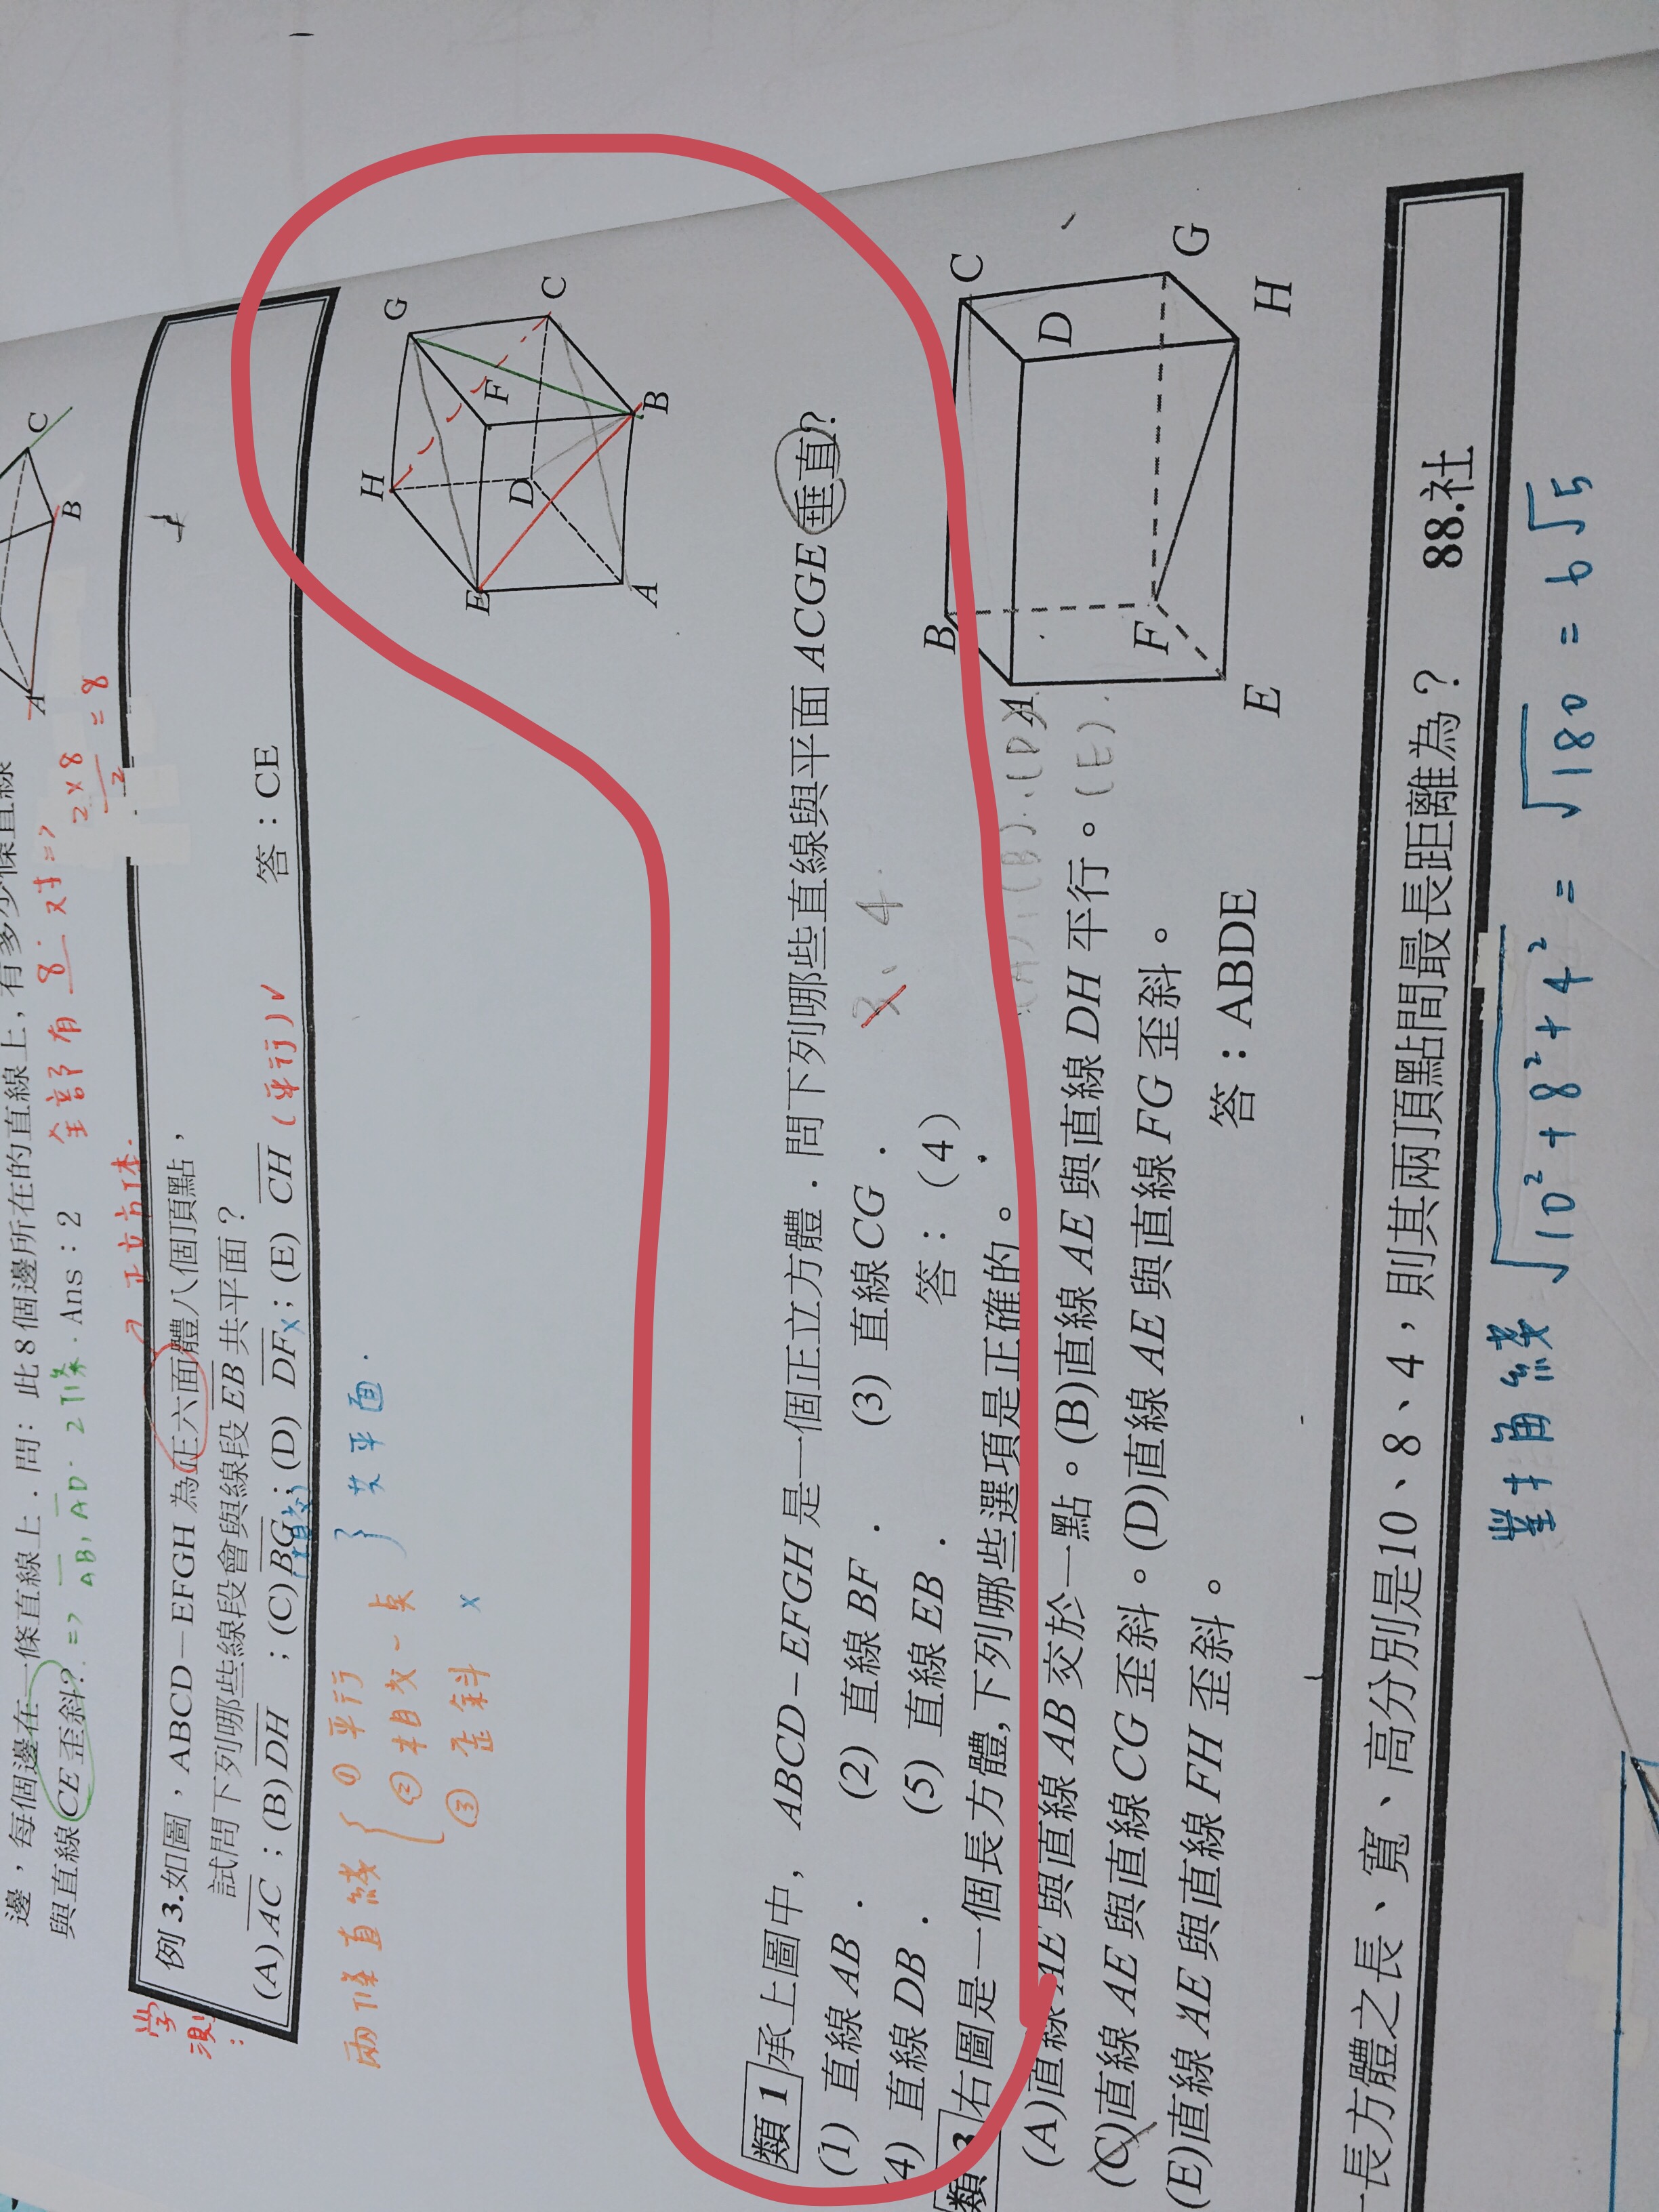 C
B
A
邊，每個邊在一條直線上．問：此8個邊所在的直線上，有多少條直線
與直線CE歪斜? => AB, AD. 2條. Ans：2
全部有 8 对=?
2×8
2
= 8
? 正立方体.
学測:
例 3.如圖，ABCD－EFGH 為正六面體八個頂點，
試問下列哪些線段會與線段EB 共平面？
(A)AC；(B)DH ；(C)BG；(D) DF x；(E) CH (平行)✓
(相交)
答：CE
兩條直線 { ① 平行
② 相交一点
} 共平面.
③ 歪斜 x
H
G
E
F
D
C
A
B
類 1 承上圖中，ABCD－EFGH 是一個正立方體．問下列哪些直線與平面 ACGE 垂直?
(1) 直線AB． (2) 直線BF． (3) 直線CG．
3、4.
(4) 直線DB． (5) 直線EB． 答：(4)
類 3 右圖是一個長方體,下列哪些選項是正確的。
(A)、(B)、(D)
(A)直線AE 與直線 AB 交於一點。(B)直線 AE 與直線DH 平行。(E).
(C)直線 AE 與直線CG 歪斜。(D)直線 AE 與直線 FG 歪斜。
(E)直線AE 與直線FH 歪斜。 答：ABDE
B
C
A
D
F
G
E
H
一長方體之長、寬、高分別是10、8、4，則其兩頂點間最長距離為？ 88.社
對角線 √10²+8²+4² = √180 = 6√5